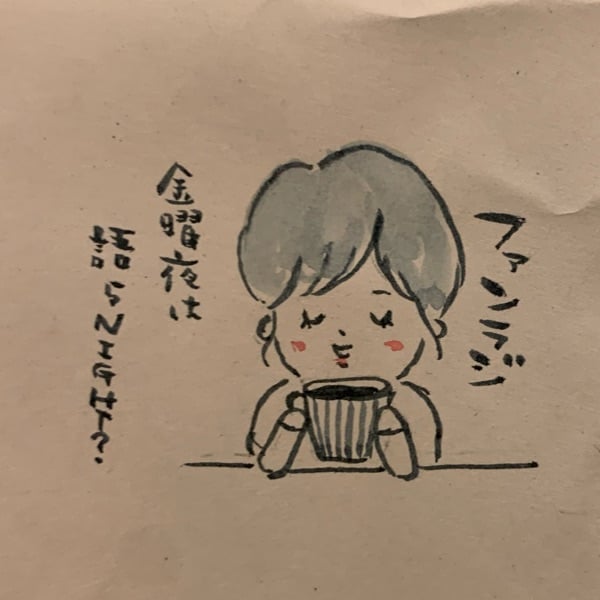 ファンラジ
金曜夜は
語らNIGHT?